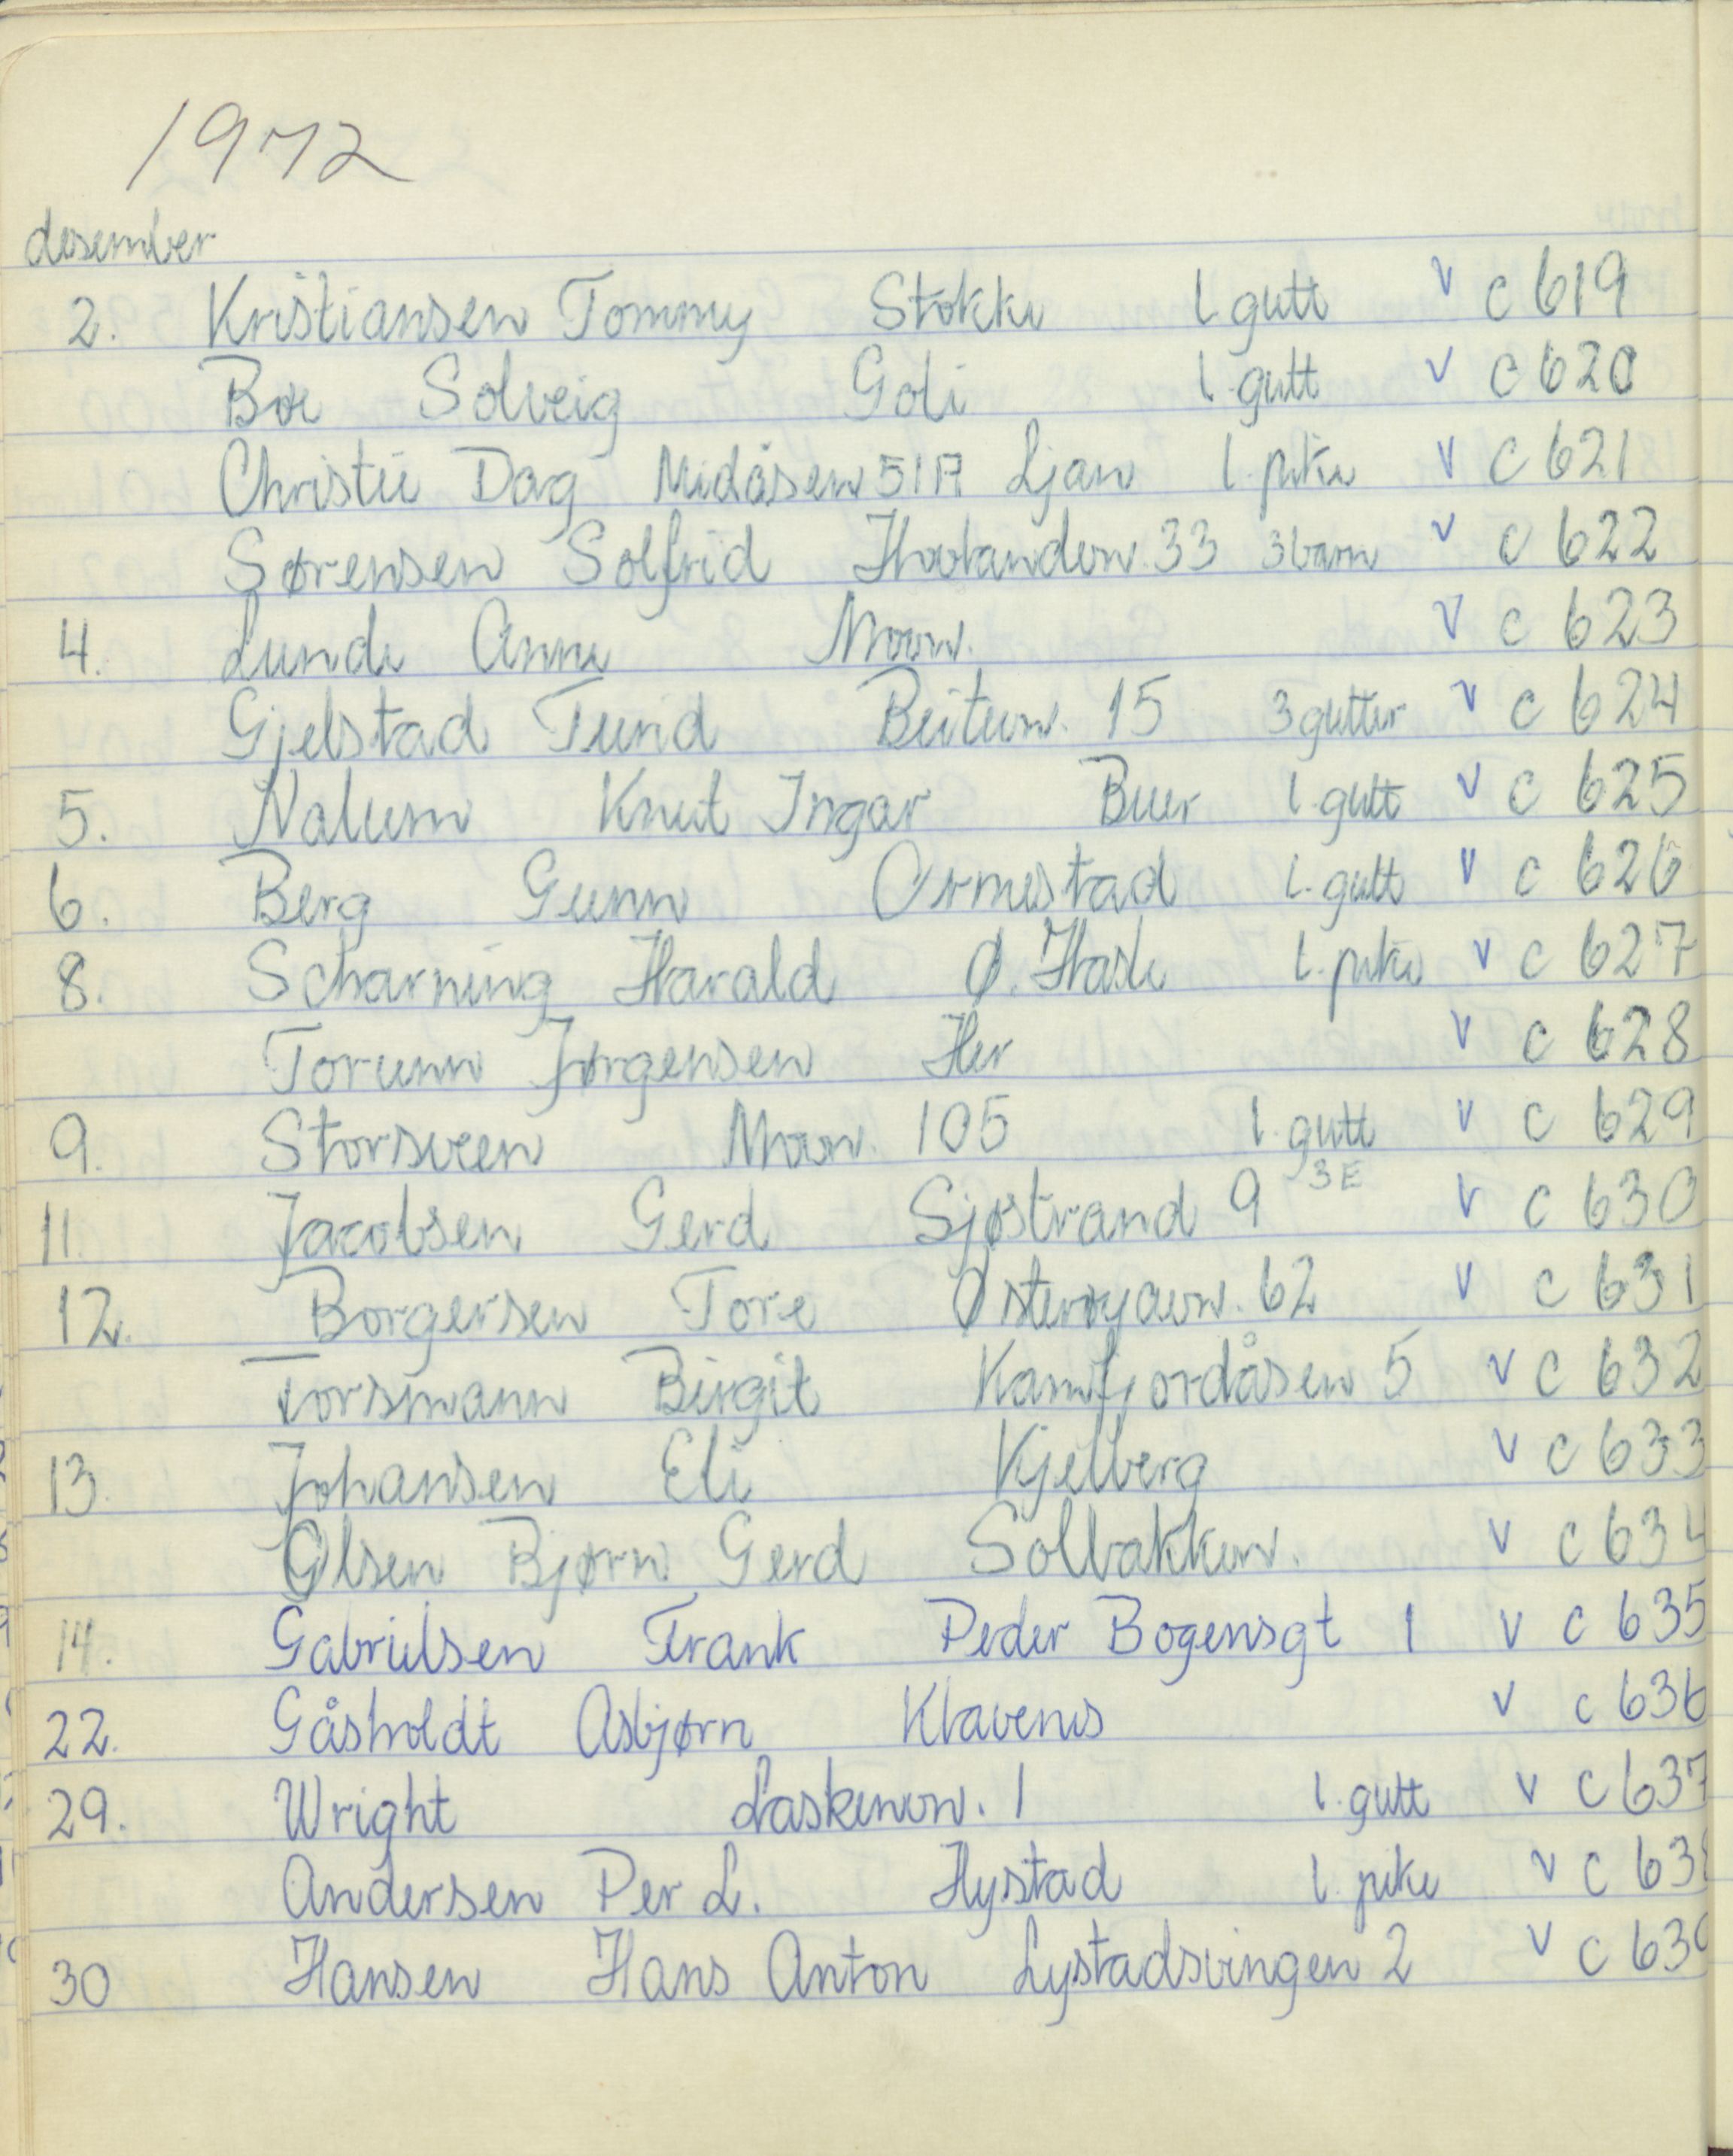 1972
desember
2. Kristiansen Tommy Stokke 1. gutt v c 619
Boe Solveig Goli 1. gutt v c 620
Christie Dag Midåsen 51A Ljan 1. pike v c 621
Sørensen Solfrid 33 3 barn v c 622
4. Lunde Anne Moav. v c 623
Gjelstad Turid 15 3 gutter v c 624
5. Nalum Knut Ingar Buer 1. gutt v c 625
6. Berg Gunn Ormestad 1. gutt v c 626
8. Scharning Harald Ø. Hasle 1. pike v c 627
Torunn Jørgensen Her v c 628
9. Storsveen Moav. 105 1. gutt v c 629
11. Jacobsen Gerd Sjøstrand 9 3E v c 630
12. Borgersen Tore Østerøyavn. 62 v c 631
Torsmann Birgit Kamfjordåsen 5 v c 632
13. Johansen Eli Kjelberg v c 633
Olsen Bjørn Gerd Solbakkev. v c 634
14. Gabrielsen Frank Peder Bogensgt 1 v c 635
22. Gåsholdt Asbjørn Klavenes v c 636
29. Wright 1 1. gutt v c 637
Andersen Per L. Hystad 1. pike v c 638
30 Hansen Hans Anton Lystadsvingen 2 v c 639